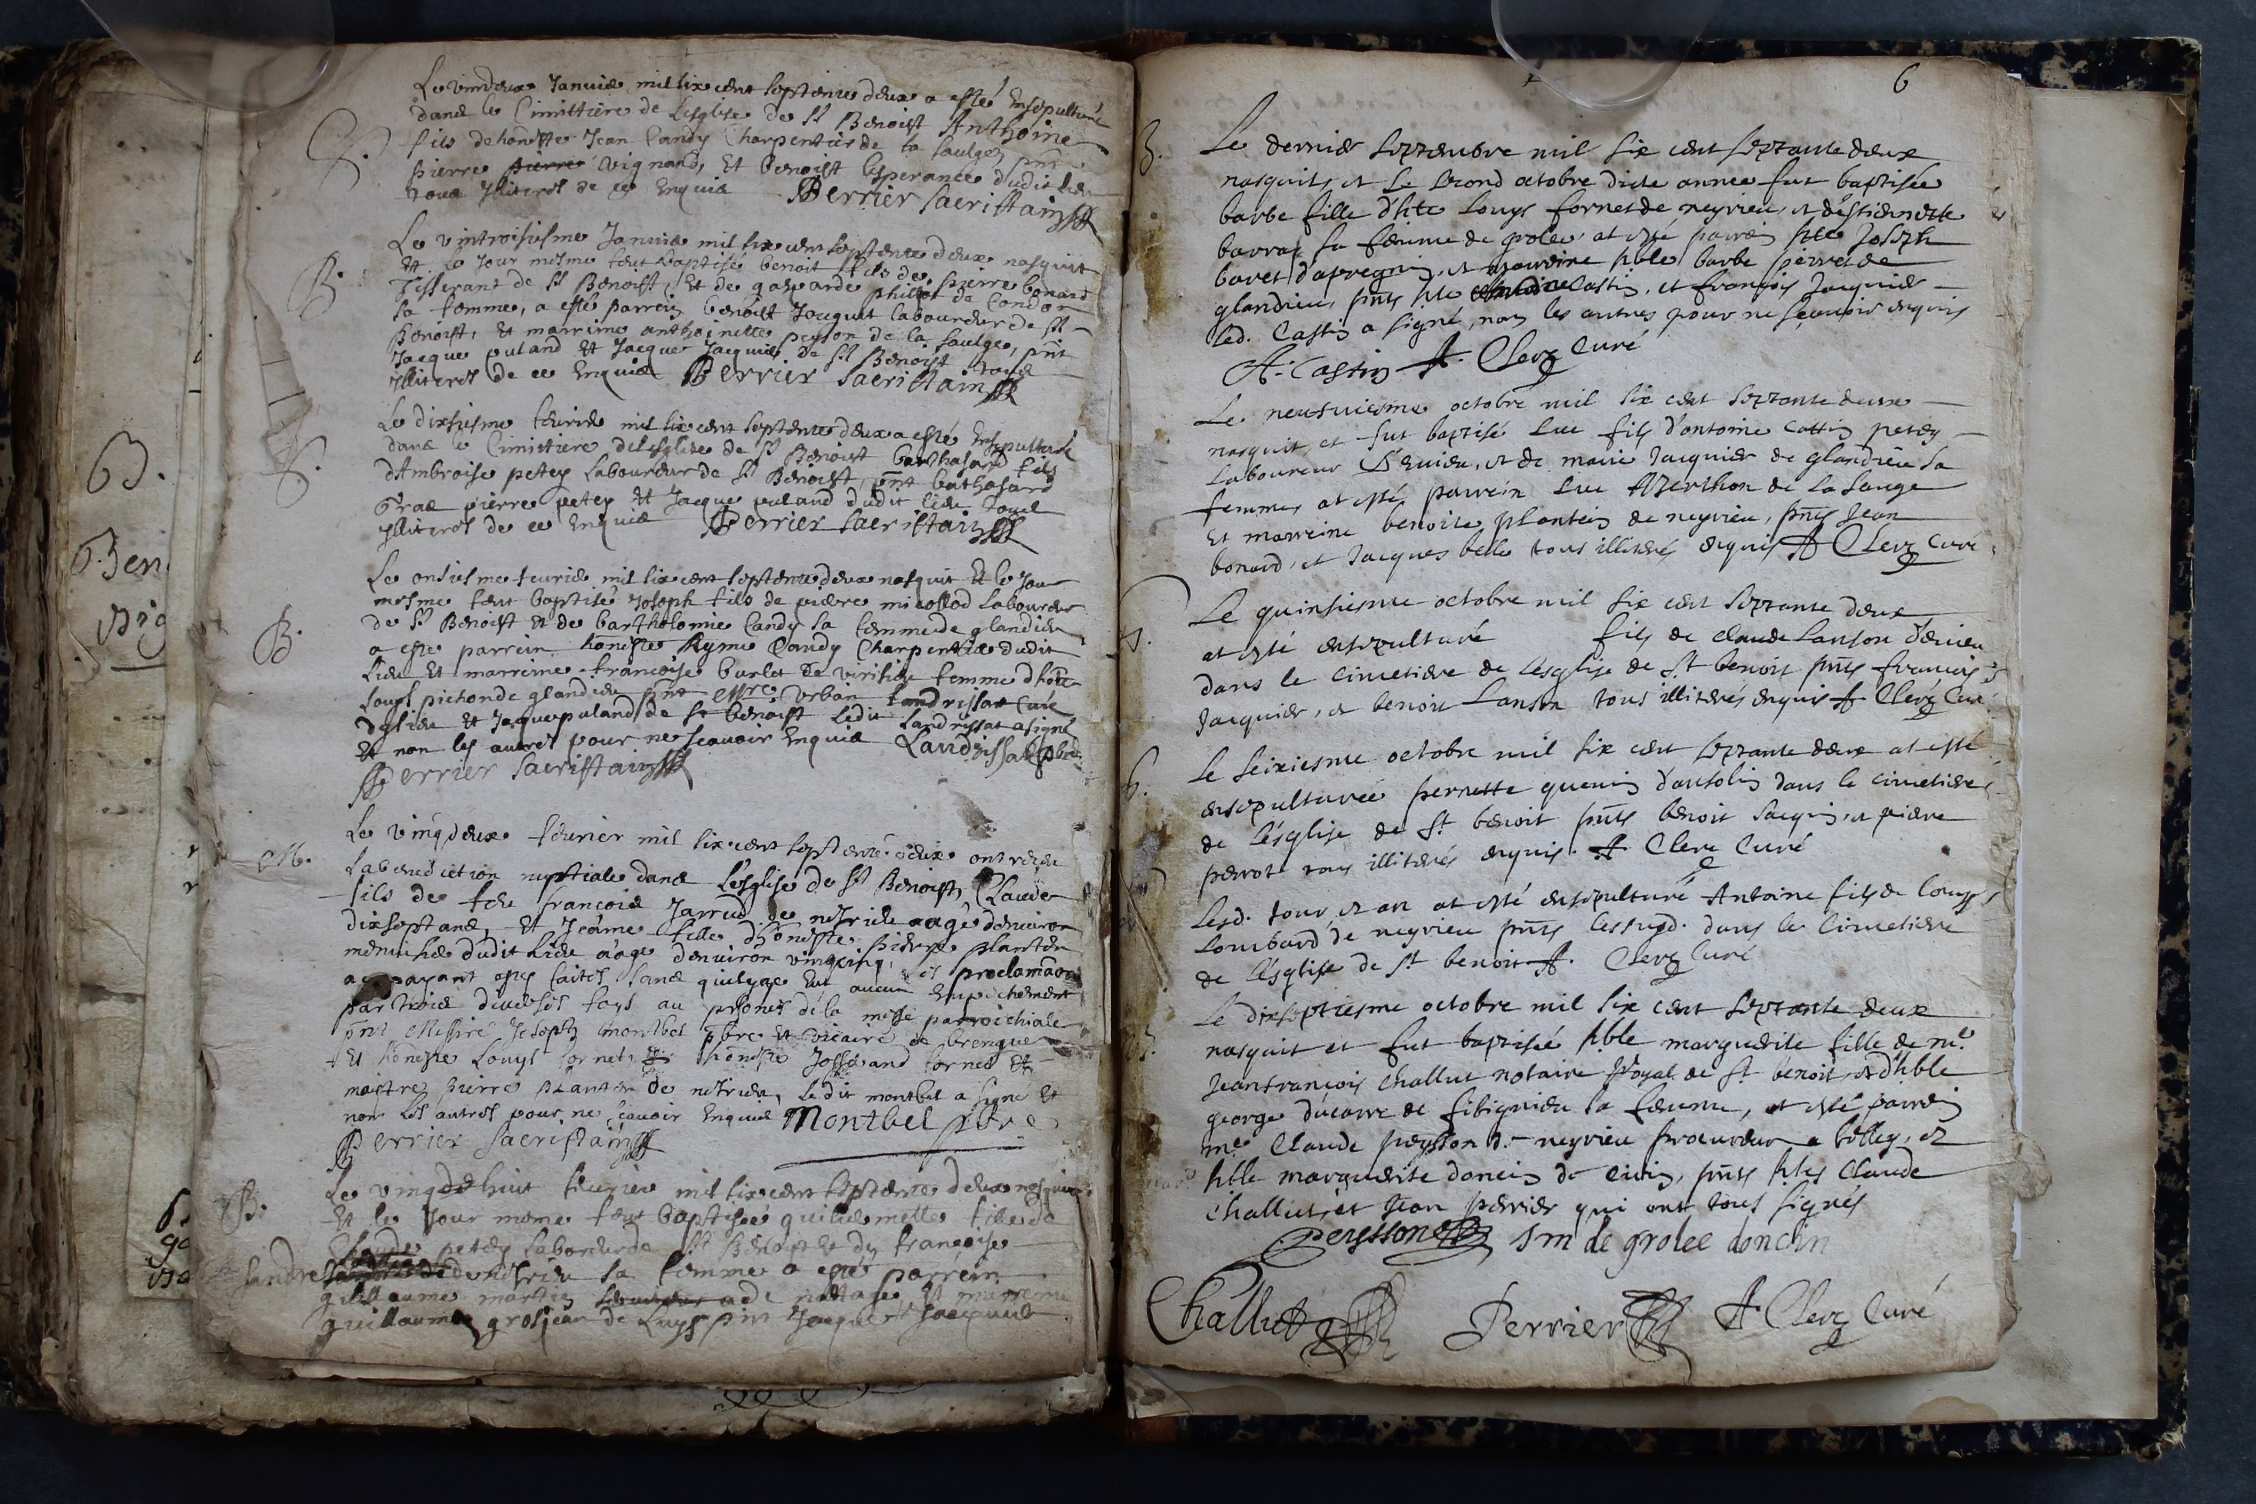 B.
Ben
vig
S.
Le vindeux Januie mil six cent septente deux a esté Ensepulturé
dans le Cimittiere de Lesglise de St Benoist Anthoine
fils de honeste Jean Candy Charpentier de la saulge, pnt
pierre pierre vignand, Et benoist lesperance dudit lieu
tous Illiteres de ce Enquis Perrier sacristain
B.
Le vintroisiesme Januie mil six cent septente deux nasquit
Et le jour mesme feut baptisé benoit fils de pierre bonard
Tisserant de St Benoist, Et de gasparde philliot de Condon
sa femme, a esté parrein benoist Jacquet laboureur de St
Benoist, Et marrine anthoinette peyson de la saulge, pnt
Jacque puland Et Jacque Jacquie de St Benoist tous
Illiteres de ce Enquis Perrier sacristain
S.
Le dixsiesme feurie mil six cent septente deux a esté Ensepulturé
dans le Cimittiere de lesglise de St Benoist balthasard fils
d'Ambroise petey laboureur de St Benoist, pnt balthasard
Gras pierre petey Et Jacque puland dudit lieu tous
Illiteres de ce Enquis Perrier sacristain
B.
Le onsiesme feurie mil six cent septente deux nasquit Et le Jour
mesme feut baptisé Joseph fils de piere micollod laboureur
de St Benoist Et de bartholomie Candy sa femme de glandieu
a este parrein honeste Ayme Candy Charpentie dudit
lieu Et marreine francoise burlet de virieu femme dhote
Louys pichon de glandieu pnt Mre Vrban Landrissat Curé
dyslieu Et Jaque puland de St benoist ledit Landrissat a signé
Et non les autres pour ne scauoir Enquis Landrissat pbre
Perrier sacristain
M.
Le vingdeux feurier mil six cent septente deux ont receu
La benediction nuptiale dans Lesglise de St Benoist, Claude
fils de feu francois Jarrud de neirieu aagé denuiron
dixsept ans, Et Jeanne fille d'honeste Pierre plantin
menuisie dudit lieu aagé denuiron vingcinq, les proclamaons
auparauant ayes faites sans quil y ait Eut aucun Empechement
par trois diuerses foys au prosnes de la messe parroichiale
pnt Messire Joseph montbel pbre Et vicaire de brengue
+ Et honeste Louys fornet, Et honeste Josserand fornet Et
maitre pierre plantin de neirieu, ledit montbel a signé Et
non les autres pour ne scauoir Enquis Montbel pbre
Perrier sacristain
B.
Le vingdehuit feurier mil six cent septente deux nasquit
Et le jour mesme feut baptisée guillielmette fille de
Claude petey laboureur de St Benoist Et de francoise
sandre de neirieu sa femme a esté parrein
guillaume martin de nattage Et marreine
guillauma grosjean de Luys pnt Jacque Et Jacquet
6
B.
Le dernier septembre mil six cent septante deux
nasquit, et le second octobre dicte année fut baptisée
barbe fille d'hte Louys fornet de neyrieu, et d'estiennette
barral sa femme de grolée at esté parrein hte Joseph
baret d'apregnin, et marreine hble barbe perret de
glandieu, pnts hte antoine Castin, et francois Jacquier
led. Castin a signé, non les autres pour ne scauoir enquis
A. Castin A. Clerc Curé
Le neufuiesme octobre mil six cent septante deux
nasquit et fut baptisé Luc fils d'antoine Cattin petey
Laboureur d'euieu, et de marie Jacquier de glandieu sa
femme, at esté parrein Luc Merthon de la Sauge
Et marreine benoite plantin de neyrieu, pnts Jean
bonard, et Jacques belle tous illiterés enquis A Clerc Curé
S.
Le quinsiesme octobre mil six cent septante deux
at esté ensepulturé fils de claude Lanson d'euieu
dans le cimetiere de l'esglise de St benoit pnts francois
Jacquier, et benoit Lanson tous illiterés enquis A Clerc Curé
S.
Le seiziesme octobre mil six cent septante deux at esté
ensepulturée pernette quenin d'antolin dans le cimetiere
de l'esglise de St benoit pnts benoit Jacquin, et piere
perrot tous illiterés enquis. A Clerc Curé
Lesd. jour, et an at esté ensepulturé Antoine fils de Louys
Lombard de neyrieu pnts les susd. dans le Cimetiere
de l'esglise de St benoit A. Clerc Curé
B.
Le dixseptiesme octobre mil six cent septante deux
nasquit et fut baptisée hble marguerite fille de me
Jean francois Challut notaire Royal de St benoit, et d'hble
george ducarre de fitignieu sa femme, at esté parrein
me Claude peysson de neyrieu procureur a belley, et
hble marguerite doncin de Cuin, pnts htes Claude
Challut, et Jean perrier qui ont tous signés
Peyssone Sm de grolee doncin
Challut Perrier A Clerc Curé